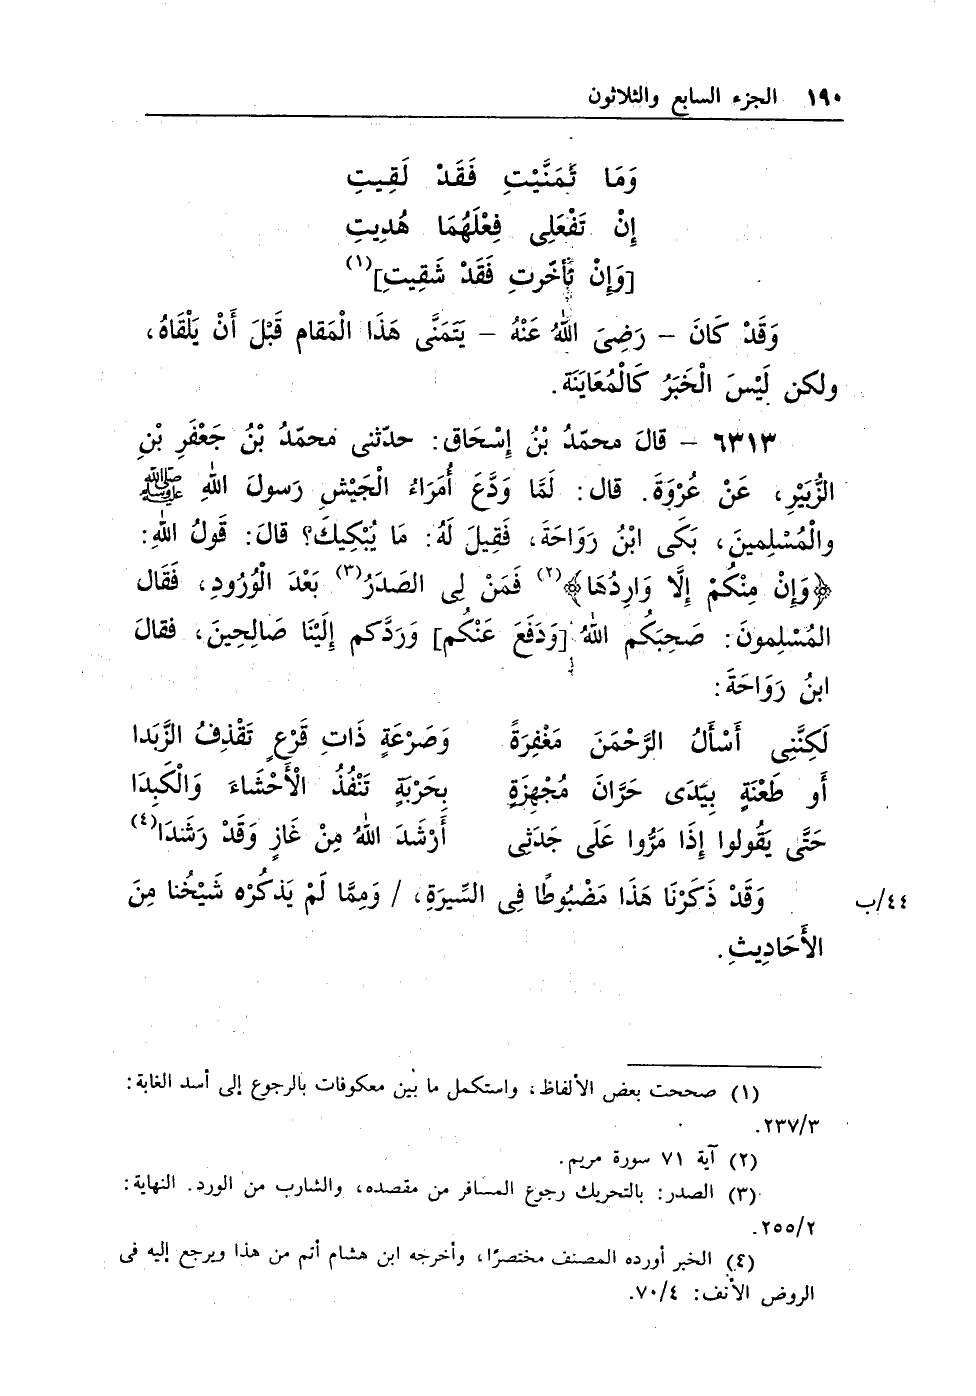 ١٩٠ الجزء السابع والثلاثون
وَمَا تَمَنَّيْتِ فَقَدْ لَقِيتِ
إِنْ تَفْعَلِى فِعْلَهُمَا هُدِيتِ
[وَإِنْ تَأَخَّرتِ فَقَدْ شَقِيتِ](١)
وَقَدْ كَانَ - رَضِىَ اللهُ عَنْهُ - يَتَمَنَّى هَذَا الْمَقَام قَبْلَ أَنْ يَلْقَاهُ،
ولكن لَيْسَ الْخَبَرُ كَالْمُعَايَنَة.
٦٣١٣ - قالَ محمّدُ بْنُ إِسْحَاق: حدّثنى محمّدُ بْنُ جَعْفَرِ بْنِ
الزُّبَيْرِ، عَنْ عُرْوَةَ. قال: لَمَّا وَدَّعَ أُمَرَاءُ الْجَيْشِ رَسولَ اللهِ ﷺ
والْمُسْلِمينَ، بَكَى ابْنُ رَوَاحَةَ، فَقِيلَ لَهُ: مَا يُبْكِيكَ؟ قالَ: قَولُ اللهِ:
﴿وَإِنْ مِنْكُمْ إِلَّا وَارِدُهَا﴾(٢) فَمَنْ لِى الصَدَرُ(٣) بَعْدَ الْوُرُودِ، فَقَال
المُسْلِمونَ: صَحِبَكُم اللهُ [وَدَفَعَ عَنْكُم] وَرَدَّكم إِلَيْنَا صَالِحِينَ، فقالَ
ابنُ رَوَاحَةَ:
لَكِنَّنِى أَسْأَلُ الرَّحْمَنَ مَغْفِرَةً وَصَرْعَةٍ ذَاتِ قَرْعٍ تَقْذِفُ الزَّبَدا
أَو طَعْنَةٍ بِيَدَى حَرَّانَ مُجْهِزَةٍ بِحَرْبَةٍ تَنْفُذُ الْأَحْشَاءَ وَالْكَبِدَا
حَتَّى يَقُولوا إِذَا مَرُّوا عَلَى جَدَثِى أَرْشَدَ اللهُ مِنْ غَازٍ وَقَدْ رَشَدَا(٤)
وَقَدْ ذَكَرْنَا هَذَا مَضْبُوطًا فِى السِّيرَةِ، / وَمِمَّا لَمْ يَذكُرْه شَيْخُنا مِنَ ٤٤/ب
الأَحَادِيثِ.
(١) صححت بعض الألفاظ، واستكمل ما بين معكوفات بالرجوع إلى أسد الغابة:
٢٣٧/٣.
(٢) آية ٧١ سورة مريم.
(٣) الصدر: بالتحريك رجوع المسافر من مقصده، والشارب من الورد. النهاية:
٢٥٥/٢.
(٤) الخبر أورده المصنف مختصرًا، وأخرجه ابن هشام أتم من هذا ويرجع إليه فى
الروض الأنف: ٧٠/٤.